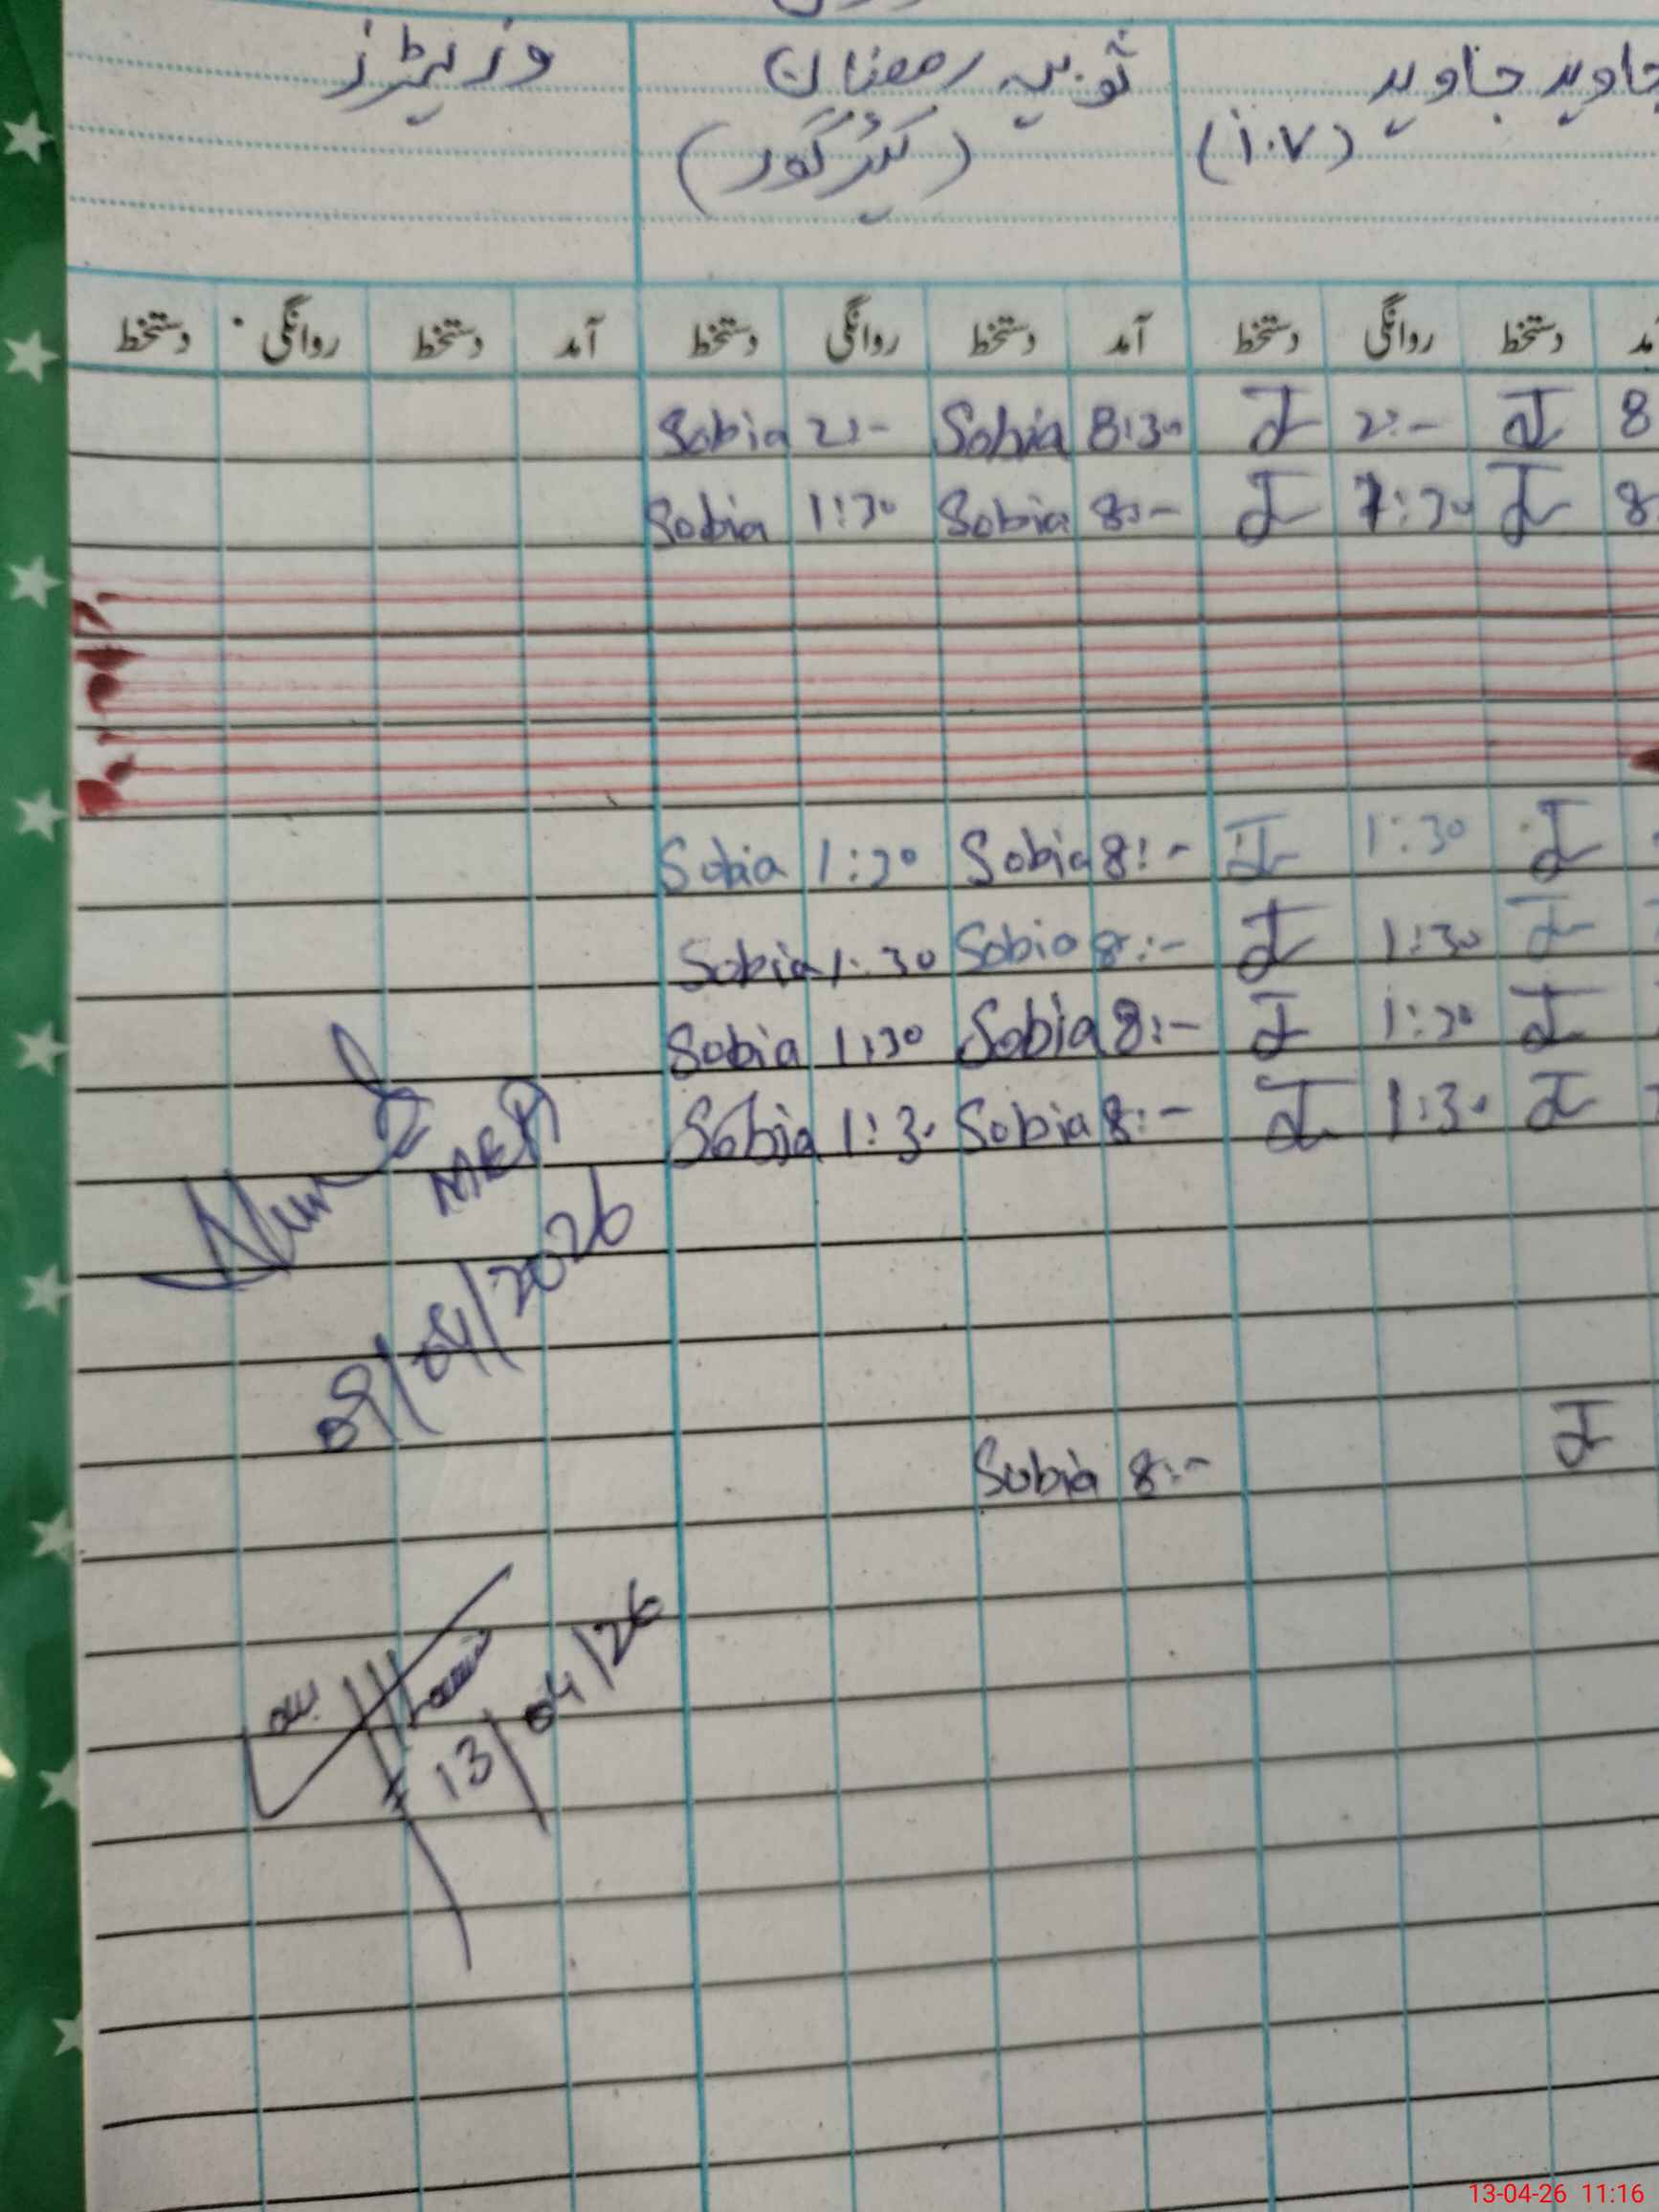 جاوید جاوید ثوبیہ رمضان وزیٹرز
(۱۰۷) (کیئر گور)
آمد دستخط روانگی دستخط آمد دستخط روانگی دستخط آمد دستخط روانگی دستخط
8 2:- 8:30 Sobia 2:- Sobia
8 1:30 8:- Sobia 1:30 Sobia
1:30 8:- Sobia 1:30 Sobia
1:30 8:- Sobia 1:30 Sobia
1:30 8:- Sobia 1:30 Sobia
1:30 8:- Sobia 1:30 Sobia
MEA
08/04/2026
8:- Sobia
13/04/26
13-04-26 11:16